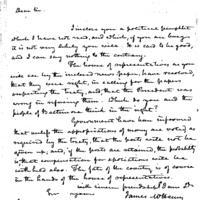 Dear Sir.
I inclose you a political pamphlet
which I have not read, and which, if you are longer
it is not very likely you will. It is said to be good,
and I can say nothing to the contrary.
The house of representatives as you
will see by the inclosed news paper, have resolved,
that they were right, in calling for the papers
respecting the treaty, and that the President was
wrong in refusing them. Which do you and the
people of think in the right?
Government have been informed
that unless the appropriations of money are voted as
required by the treaty, that the posts will not be
given up; and, if the posts are retained, the probability
is that compensation for spoliations will be
with held also. The fate of the country is of course
in the hands of the house of representatives.
with sincere friendship I am Dr
Sir yours
James McHenry